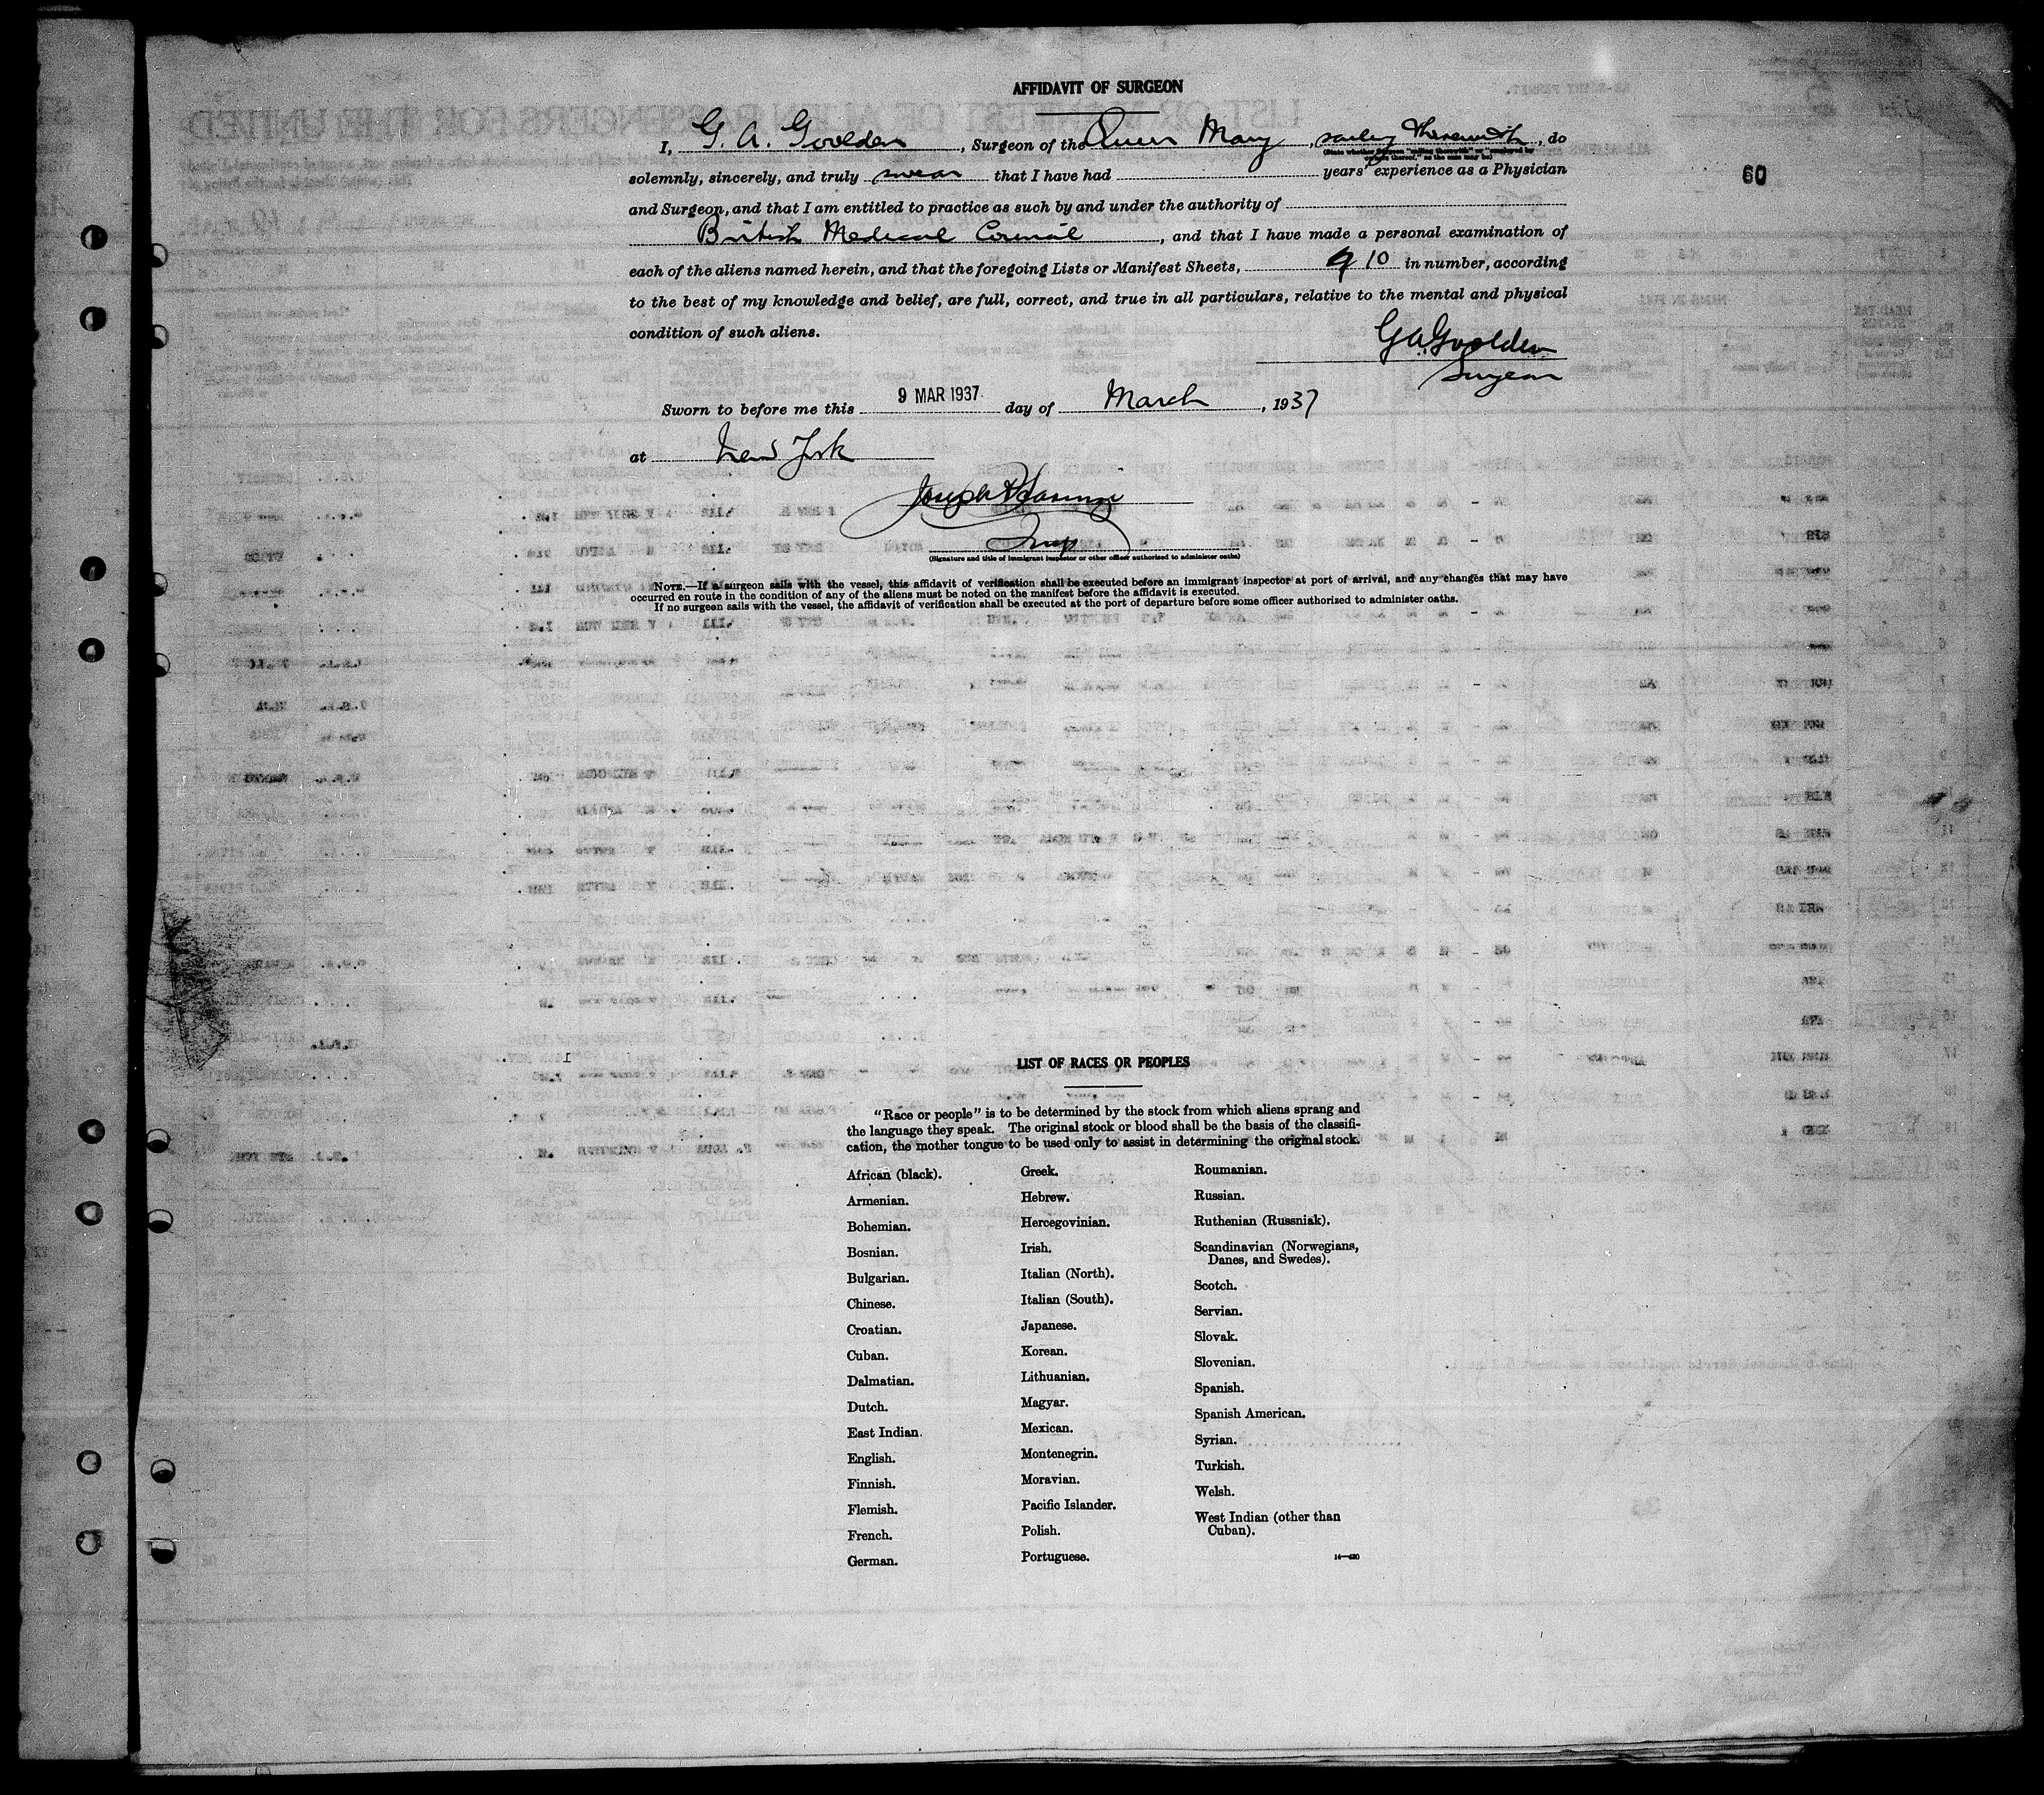 AFFIDAVIT OF SURGEON
60
I, G. A. Goolden, Surgeon of the Queen Mary, sailing therewith, do
(State whether Surgeon "sailing therewith" or "employed by owners thereof," as the case may be)
solemnly, sincerely, and truly swear that I have had years' experience as a Physician
and Surgeon, and that I am entitled to practice as such by and under the authority of
British Medical Council, and that I have made a personal examination of
each of the aliens named herein, and that the foregoing Lists or Manifest Sheets, 10 in number, according
to the best of my knowledge and belief, are full, correct, and true in all particulars, relative to the mental and physical
condition of such aliens.
G A Goolden
Surgeon
Sworn to before me this 9 MAR 1937 day of March, 1937
at New York
Joseph
Insp
(Signature and title of immigrant inspector or other officer authorized to administer oaths)
NOTE.—If a surgeon sails with the vessel, this affidavit of verification shall be executed before an immigrant inspector at port of arrival, and any changes that may have
occurred en route in the condition of any of the aliens must be noted on the manifest before the affidavit is executed.
If no surgeon sails with the vessel, the affidavit of verification shall be executed at the port of departure before some officer authorized to administer oaths.
LIST OF RACES OR PEOPLES
"Race or people" is to be determined by the stock from which aliens sprang and
the language they speak. The original stock or blood shall be the basis of the classifi-
cation, the mother tongue to be used only to assist in determining the original stock.
African (black).
Armenian.
Bohemian.
Bosnian.
Bulgarian.
Chinese.
Croatian.
Cuban.
Dalmatian.
Dutch.
East Indian.
English.
Finnish.
Flemish.
French.
German.
Greek.
Hebrew.
Hercegovinian.
Irish.
Italian (North).
Italian (South).
Japanese.
Korean.
Lithuanian.
Magyar.
Mexican.
Montenegrin.
Moravian.
Pacific Islander.
Polish.
Portuguese.
Roumanian.
Russian.
Ruthenian (Russniak).
Scandinavian (Norwegians,
Danes, and Swedes).
Scotch.
Servian.
Slovak.
Slovenian.
Spanish.
Spanish American.
Syrian.
Turkish.
Welsh.
West Indian (other than
Cuban).
14—430